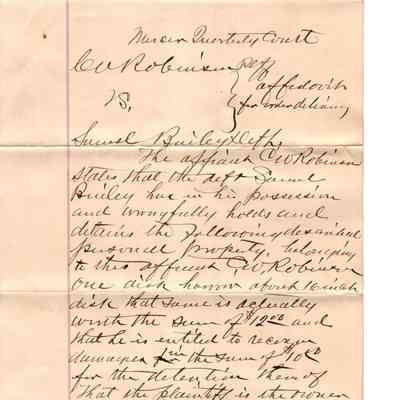 Mercer Quarterly Court
C W Robinson Plff
affidavit
VS.
for order delivery
Samuel Bailey Deft,
The affiant C W Robinson
states that the deft Samuel
Bailey has in his possession
and wrongfully holds and
detains the following described
personal property, belonging
to this affiant C. W. Robinson
one disk harrow about 16 inch
disk that same is actually
worth the sum of $12.00 and
that he is entitled to recover
damages in the sum of $10.00
for the detention thereof
That the plaintiff is the owner